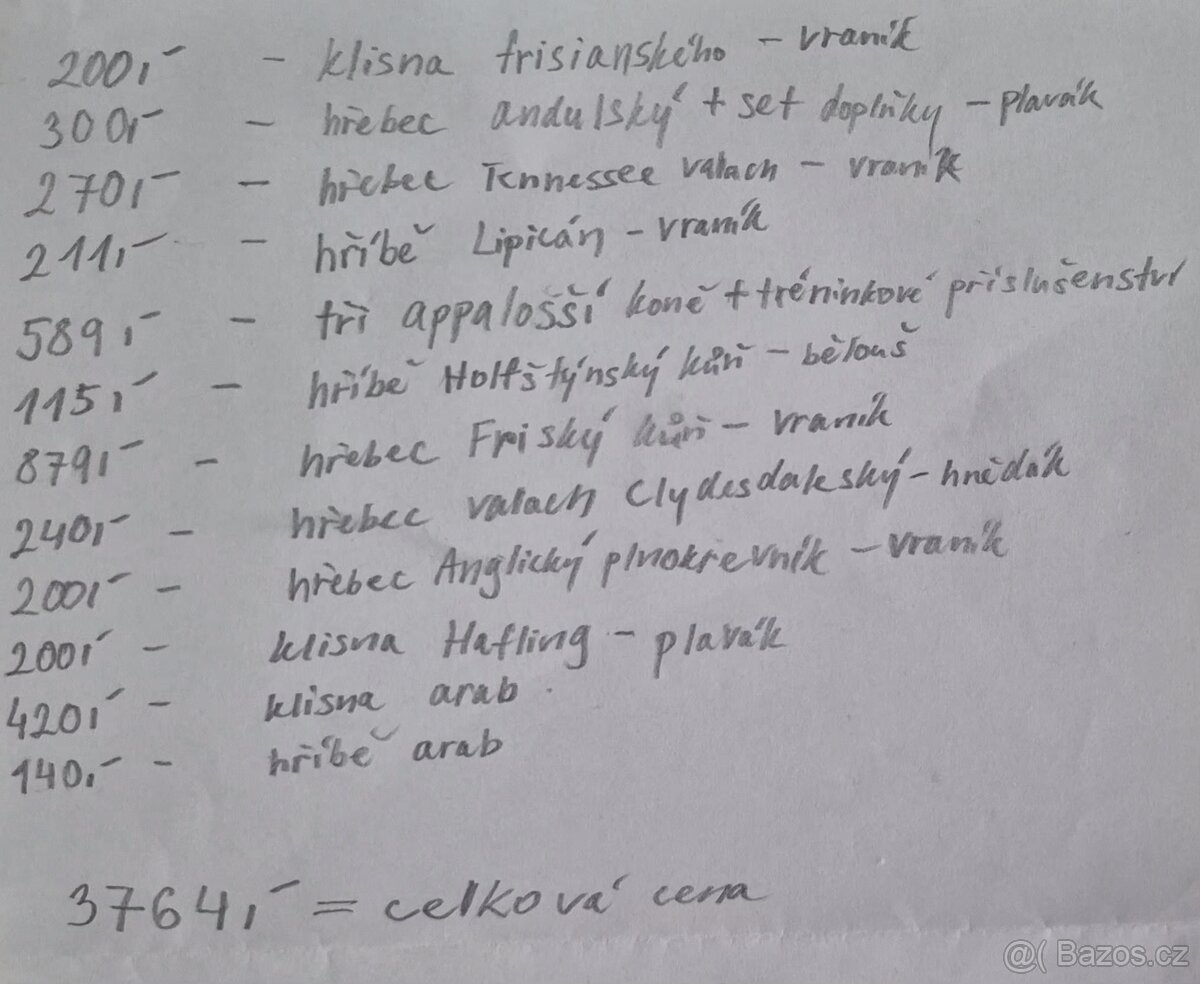 200,- - klisna frisianského - vraník
300,- - hřebec andulský + set doplňky - plavák
270,- - hřebec Tennessee valach - vraník
211,- - hříbě Lipicán - vraník
589,- - tři appalošší koně + tréninkové příslušenství
115,- - hříbě Holfštýnský kůň - bělouš
879,- - hřebec Friský kůň - vraník
240,- - hřebec valach Clydesdaleský - hnědák
200,- - hřebec Anglický plnokrevník - vraník
200,- - klisna Hafling - plavák
420,- - klisna arab
140,- - hříbě arab
3764,- = celková cena
@( Bazos.cz